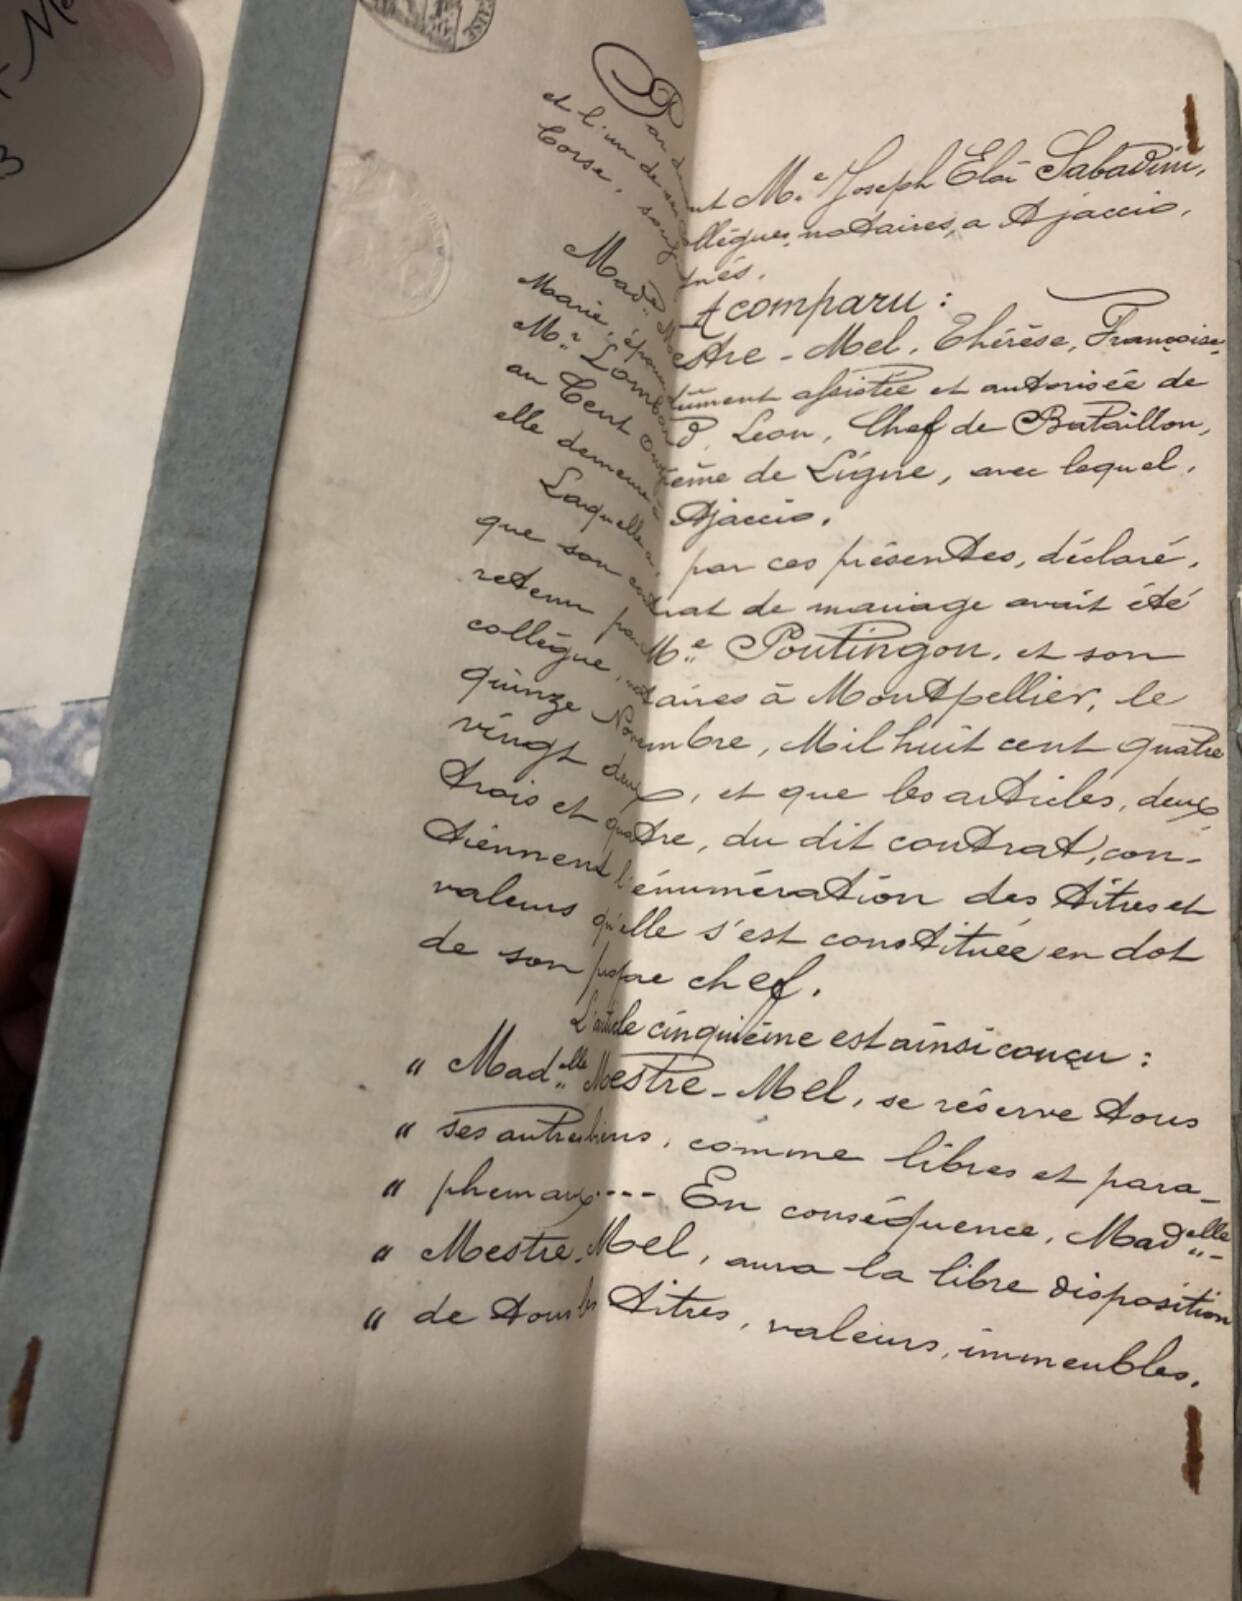 Par devant M.e Joseph Eloi Sabadini,
et l'un de ses collègues, notaires, a Ajaccio,
Corse, soussignés.
A comparu :
Made Mestre-Mel, Thérèse, Françoise,
Marie, épouse dûment assistée et autorisée de
M.r Lombard, Leon, Chef de Bataillon,
au Cent onzième de Ligne, avec lequel,
elle demeure à Ajaccio.
Laquelle a, par ces présentes, déclaré,
que son contrat de mariage avait été
retenu par M.e Poutingon, et son
collègue, notaires à Montpellier, le
quinze Novembre, Mil huit cent quatre
vingt deux, et que les articles, deux
trois et quatre, du dit contrat, con-
tiennent l'énumération des titres et
valeurs qu'elle s'est constituée en dot
de son propre chef.
L'article cinquième est ainsi conçu :
" Mad.elle Mestre-Mel, se réserve tous
" ses autres biens, comme libres et para-
" phernaux.... En conséquence, Mad.elle-
" Mestre-Mel, aura la libre disposition
" de tous les titres, valeurs, immeubles,